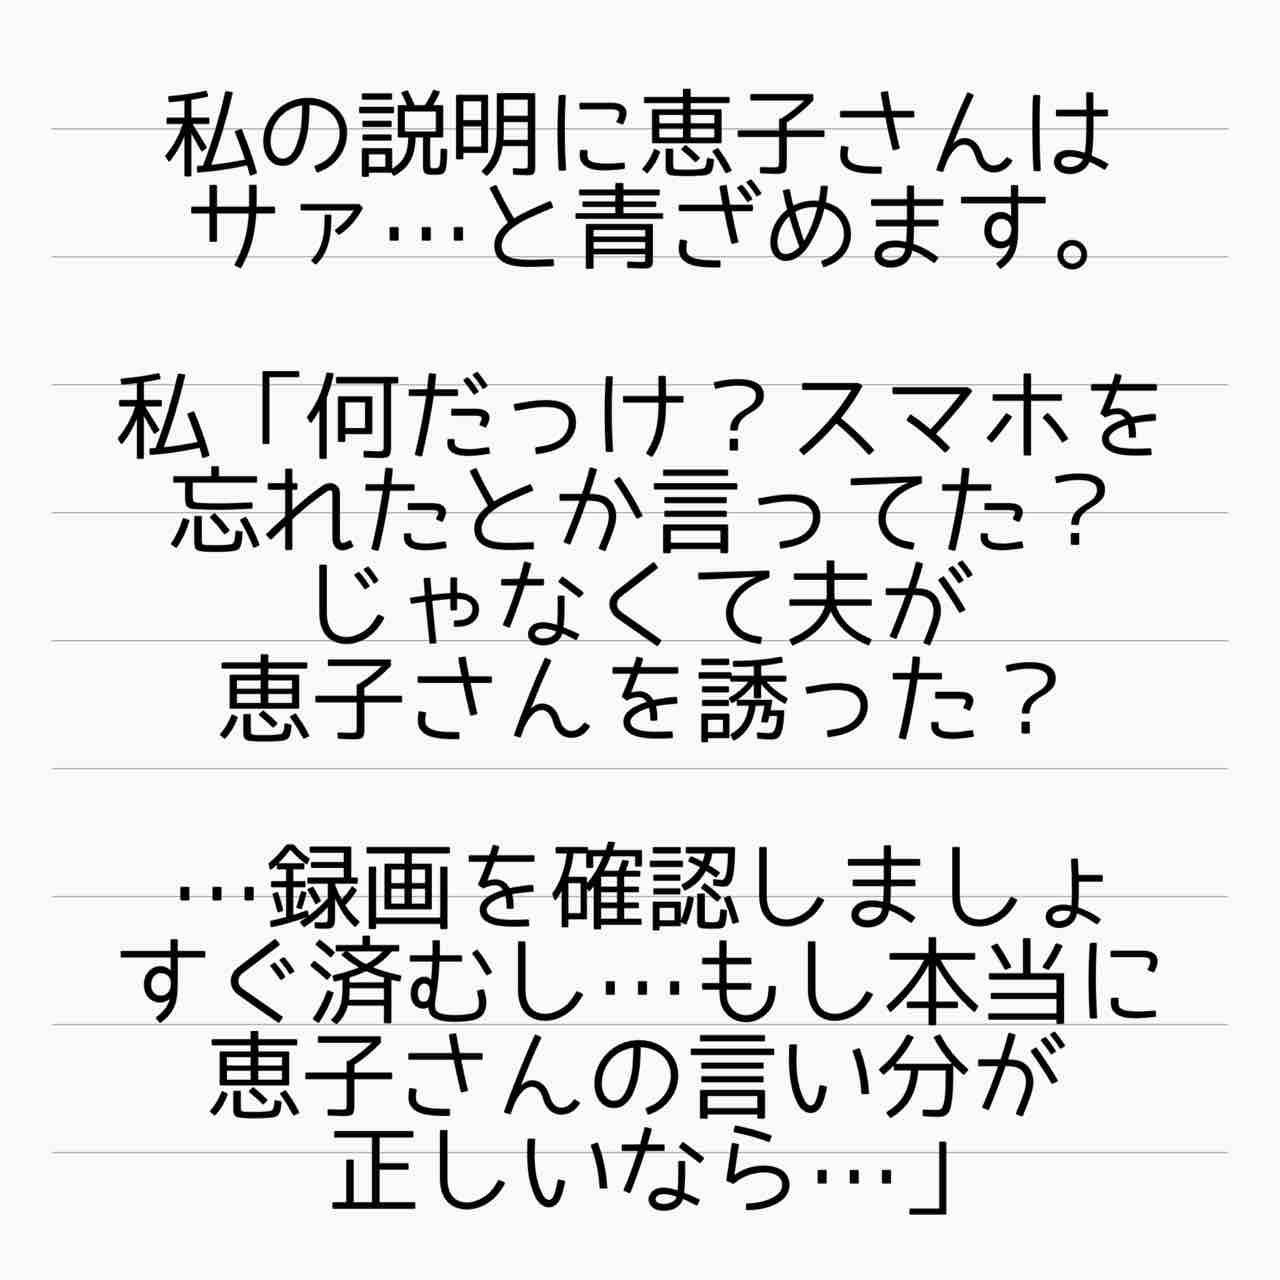 私の説明に恵子さんは
サァ…と青ざめます。
私「何だっけ？スマホを
忘れたとか言ってた？
じゃなくて夫が
恵子さんを誘った？
…録画を確認しましょ
すぐ済むし…もし本当に
恵子さんの言い分が
正しいなら…」